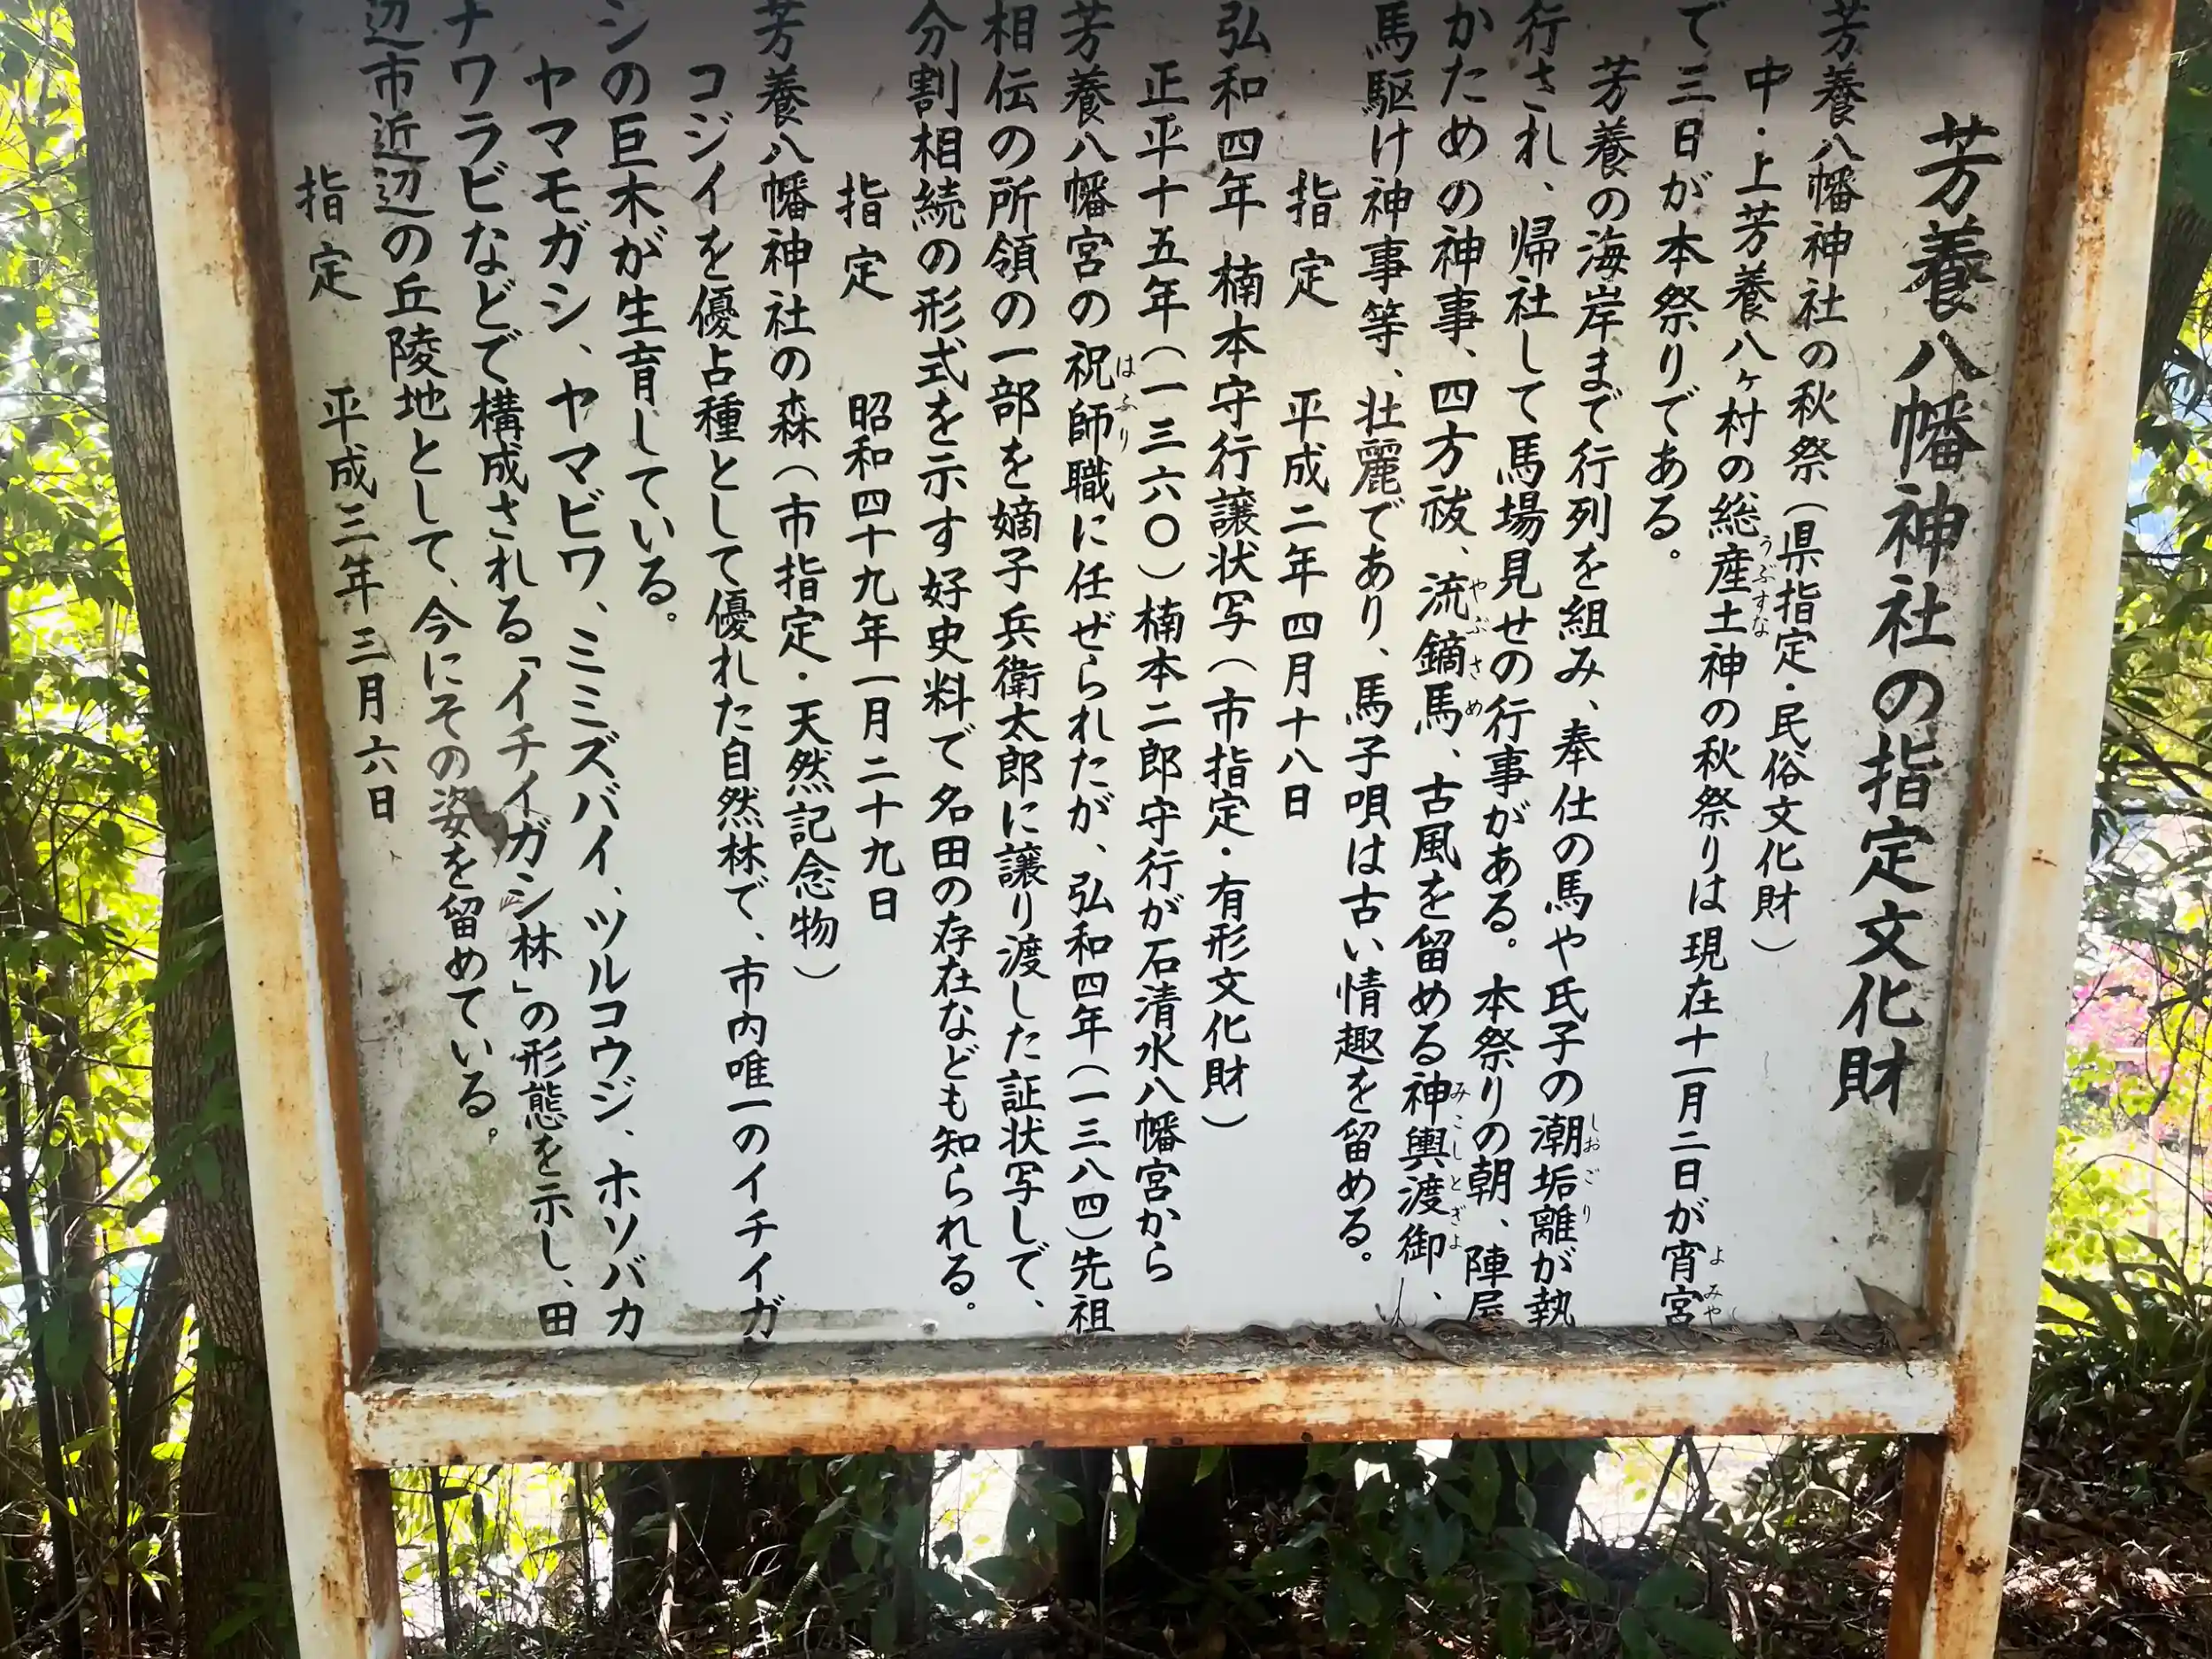 芳養八幡神社の指定文化財
芳養八幡神社の秋祭(県指定・民俗文化財)
中・上芳養八ヶ村の総産土神の秋祭りは現在十一月二日が宵宮
うぶすな
よみや
で三日が本祭りである。
芳養の海岸まで行列を組み、奉仕の馬や氏子の潮垢離が執
しおごり
行され、帰社して馬場見せの行事がある。本祭りの朝、陣屋
かための神事、四方祓、流鏑馬、古風を留める神輿渡御、
やぶさめ
みこしとぎょ
馬駆け神事等、壮麗であり、馬子唄は古い情趣を留める。
指定 平成二年四月十八日
弘和四年 楠本守行譲状写(市指定・有形文化財)
正平十五年(一三六〇)楠本二郎守行が石清水八幡宮から
芳養八幡宮の祝師職に任ぜられたが、弘和四年(一三八四)先祖
はふり
相伝の所領の一部を嫡子兵衛太郎に譲り渡した証状写しで、
分割相続の形式を示す好史料で名田の存在なども知られる。
指定 昭和四十九年一月二十九日
芳養八幡神社の森(市指定・天然記念物)
コジイを優占種として優れた自然林で、市内唯一のイチイガ
シの巨木が生育している。
ヤマモガシ、ヤマビワ、ミミズバイ、ツルコウジ、ホソバカ
ナワラビなどで構成される「イチイガシ林」の形態を示し、田
辺市近辺の丘陵地として、今にその姿を留めている。
指定 平成三年三月六日